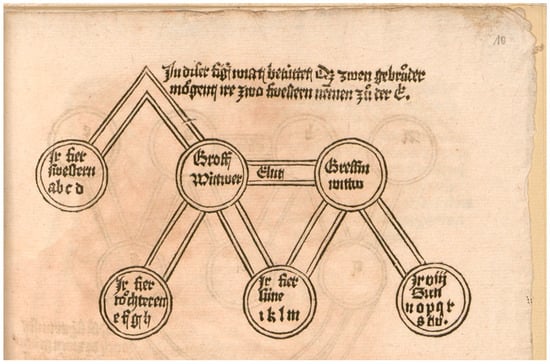 10
In diser figur wirt betüttet Dz zwen gebrüder
mögent ire zwo swestern nemen zů der E.
Ir fier
swestern
a b c d
Groff
Wittwer
Elut
Greffin
wittw
Ir fier
töchteren
e f g h
Ir fier
süne
i k l m
Ir viij
Sun
n o p q r